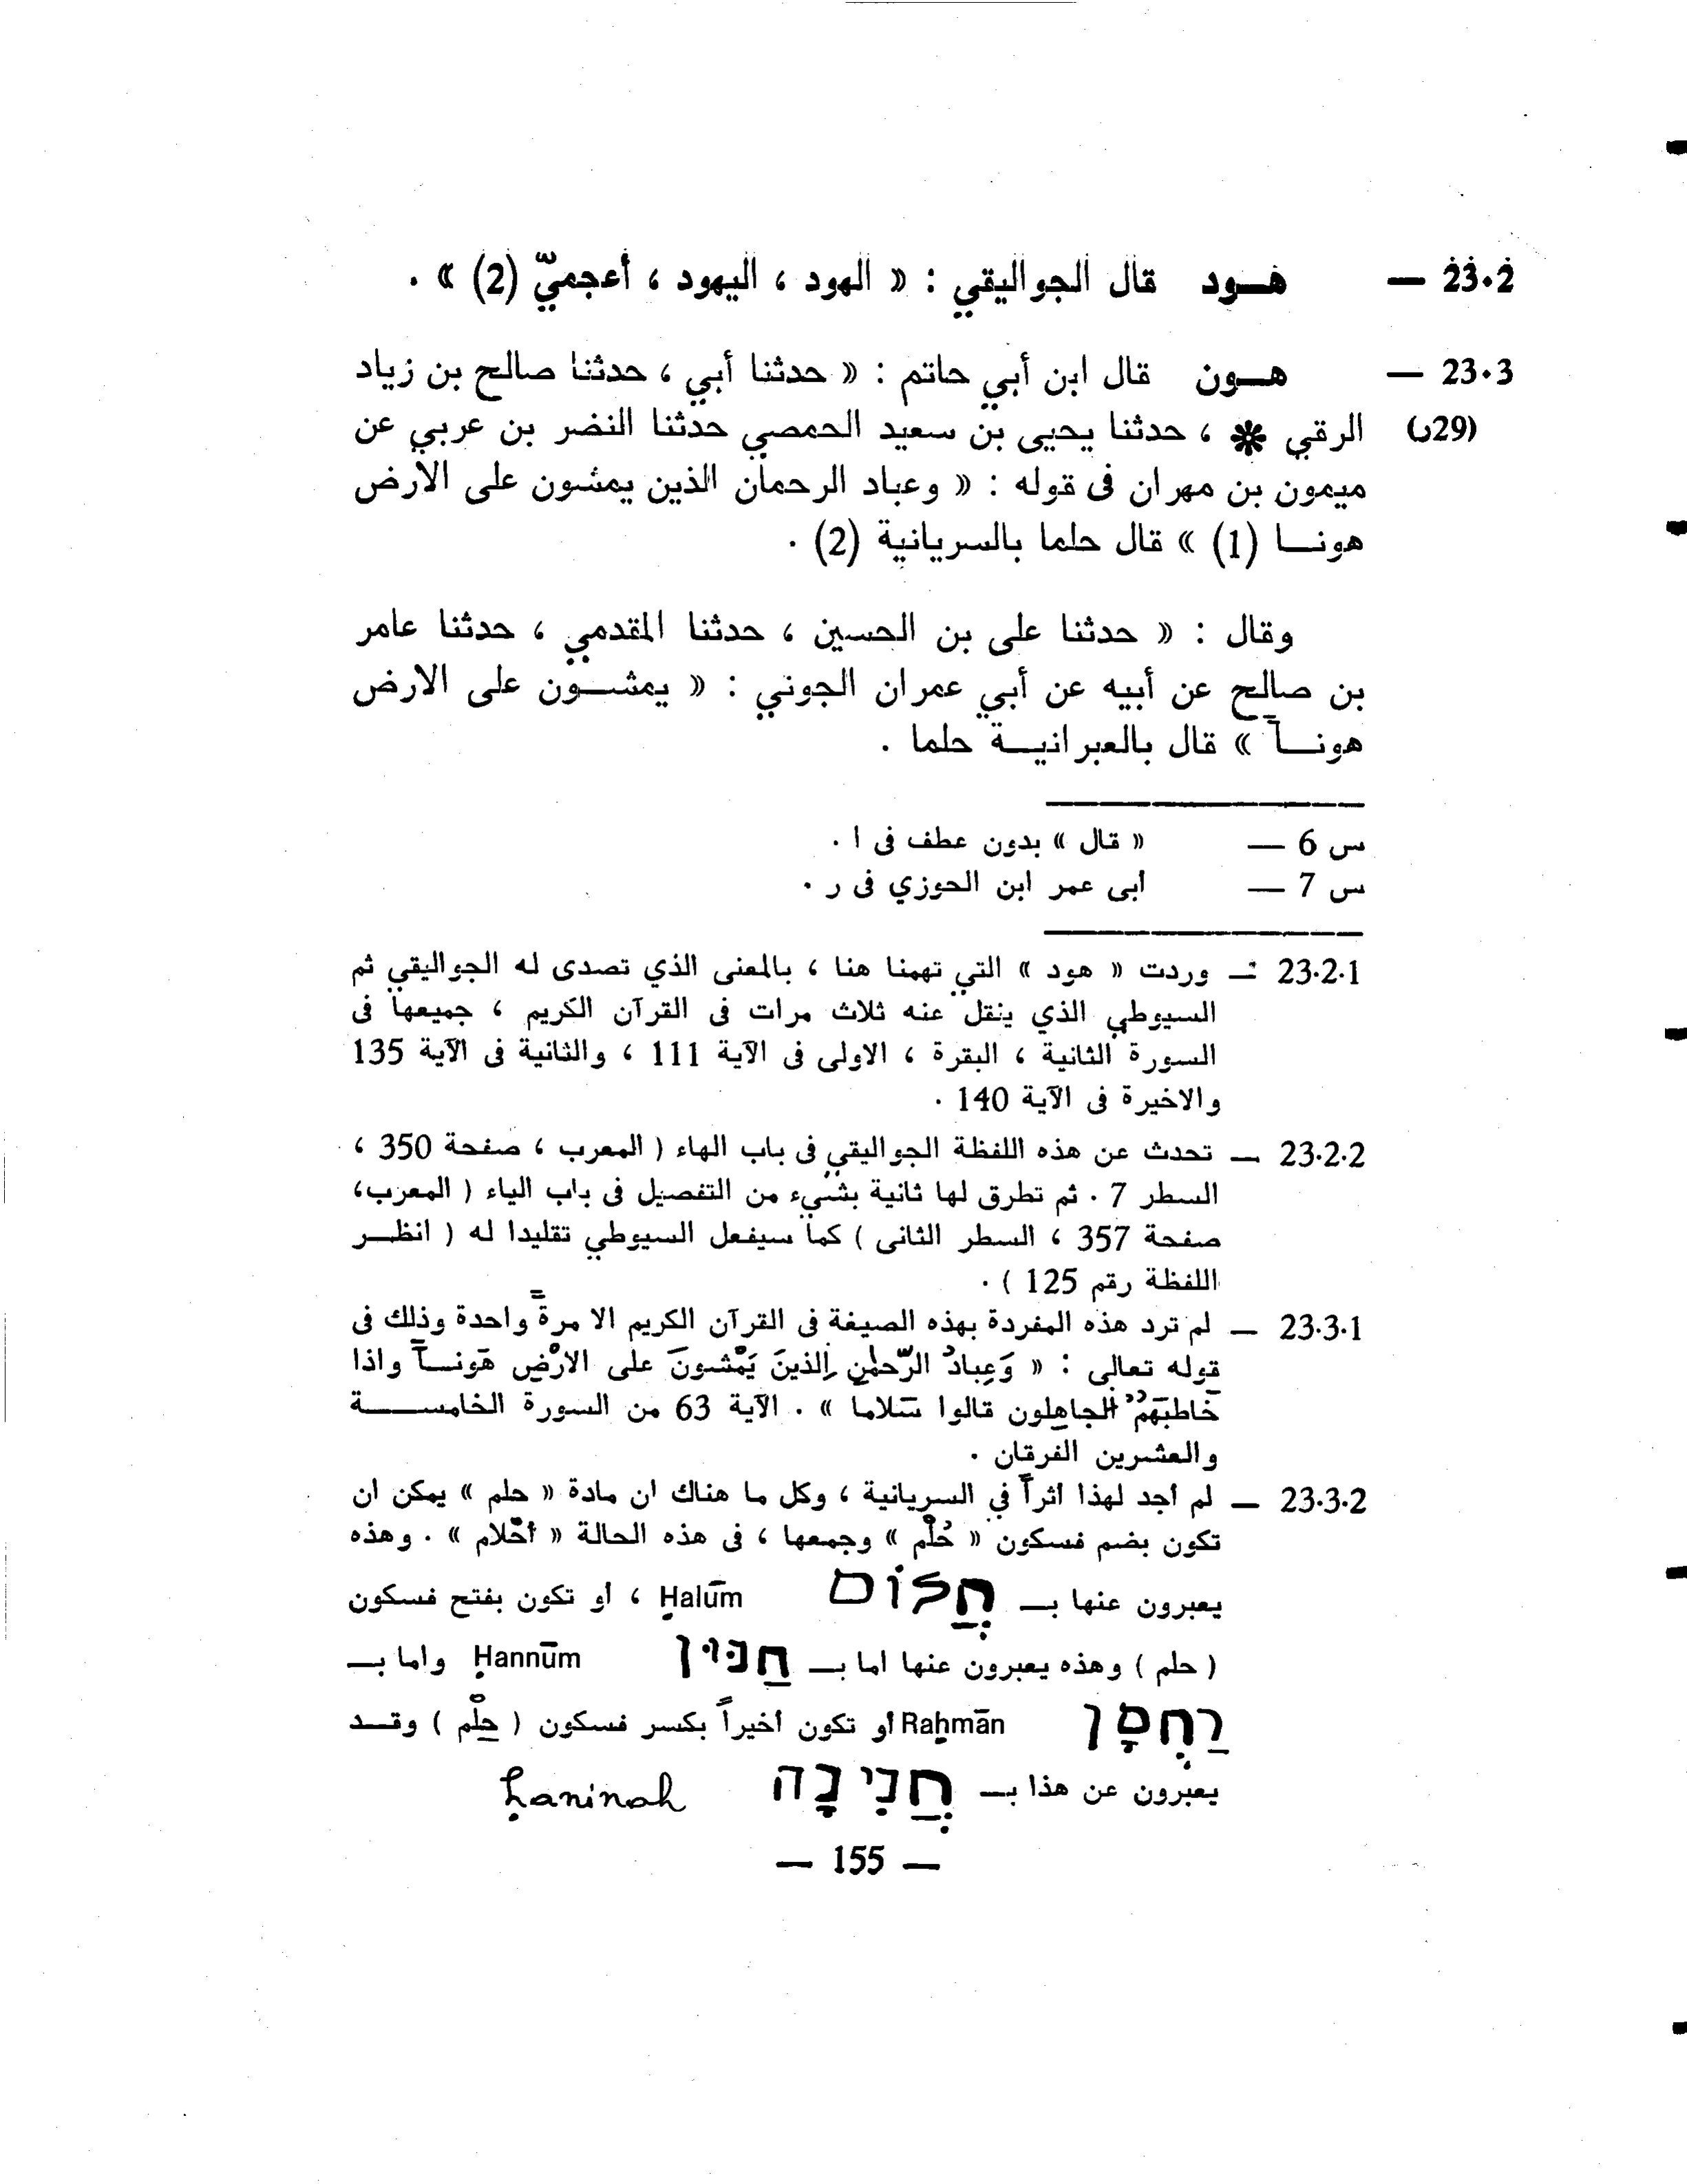 23.2 — هـود قال الجواليقي : « الهود ، اليهود ، أعجميّ (2) » .
23.3 — هـون قال ابن أبي حاتم : « حدثنا أبي ، حدثنا صالح بن زياد
(29ر) الرقي * ، حدثنا يحيى بن سعيد الحمصي حدثنا النضر بن عربي عن
ميمون بن مهران فى قوله : « وعباد الرحمان الذين يمشون على الارض
هونـا (1) » قال حلما بالسريانية (2) .
وقال : « حدثنا على بن الحسين ، حدثنا المقدمي ، حدثنا عامر
بن صالح عن أبيه عن أبي عمران الجوني : « يمشـون على الارض
هونـا » قال بالعبرانيـة حلما .
س 6 — « قال » بدون عطف فى ا .
س 7 — أبى عمر ابن الحوزي فى ر .
23.2.1 — وردت « هود » التي تهمنا هنا ، بالمعنى الذي تصدى له الجواليقي ثم
السيوطي الذي ينقل عنه ثلاث مرات فى القرآن الكريم ، جميعها فى
السورة الثانية ، البقرة ، الاولى فى الآية 111 ، والثانية فى الآية 135
والاخيرة فى الآية 140 .
23.2.2 — تحدث عن هذه اللفظة الجواليقي فى باب الهاء ( المعرب ، صفحة 350 ،
السطر 7 . ثم تطرق لها ثانية بشيء من التفصيل فى باب الياء ( المعرب،
صفحة 357 ، السطر الثانى ) كما سيفعل السيوطي تقليدا له ( انظـر
اللفظة رقم 125 ) .
23.3.1 — لم ترد هذه المفردة بهذه الصيغة فى القرآن الكريم الا مرة واحدة وذلك فى
قوله تعالى : « وَعِبادُ الرّحمٰنِ الذينَ يَمْشونَ على الارْضِ هَونـاً واذا
خَاطَبَهُمُ الجاهِلون قالوا سَلاما » . الآية 63 من السورة الخامسـة
والعشرين الفرقان .
23.3.2 — لم أجد لهذا اثراً في السريانية ، وكل ما هناك ان مادة « حلم » يمكن ان
تكون بضم فسكون « حُلْم » وجمعها ، فى هذه الحالة « أحْلام » . وهذه
يعبرون عنها بـ חֲלוֹם Ḥalūm ، أو تكون بفتح فسكون
( حلم ) وهذه يعبرون عنها اما بـ חַנּוּן Ḥannūm واما بـ
רַחְמָן Raḥmān أو تكون أخيراً بكسر فسكون ( حِلْم ) وقـد
يعبرون عن هذا بـ חֲנִינָה ḥaninah
— 155 —